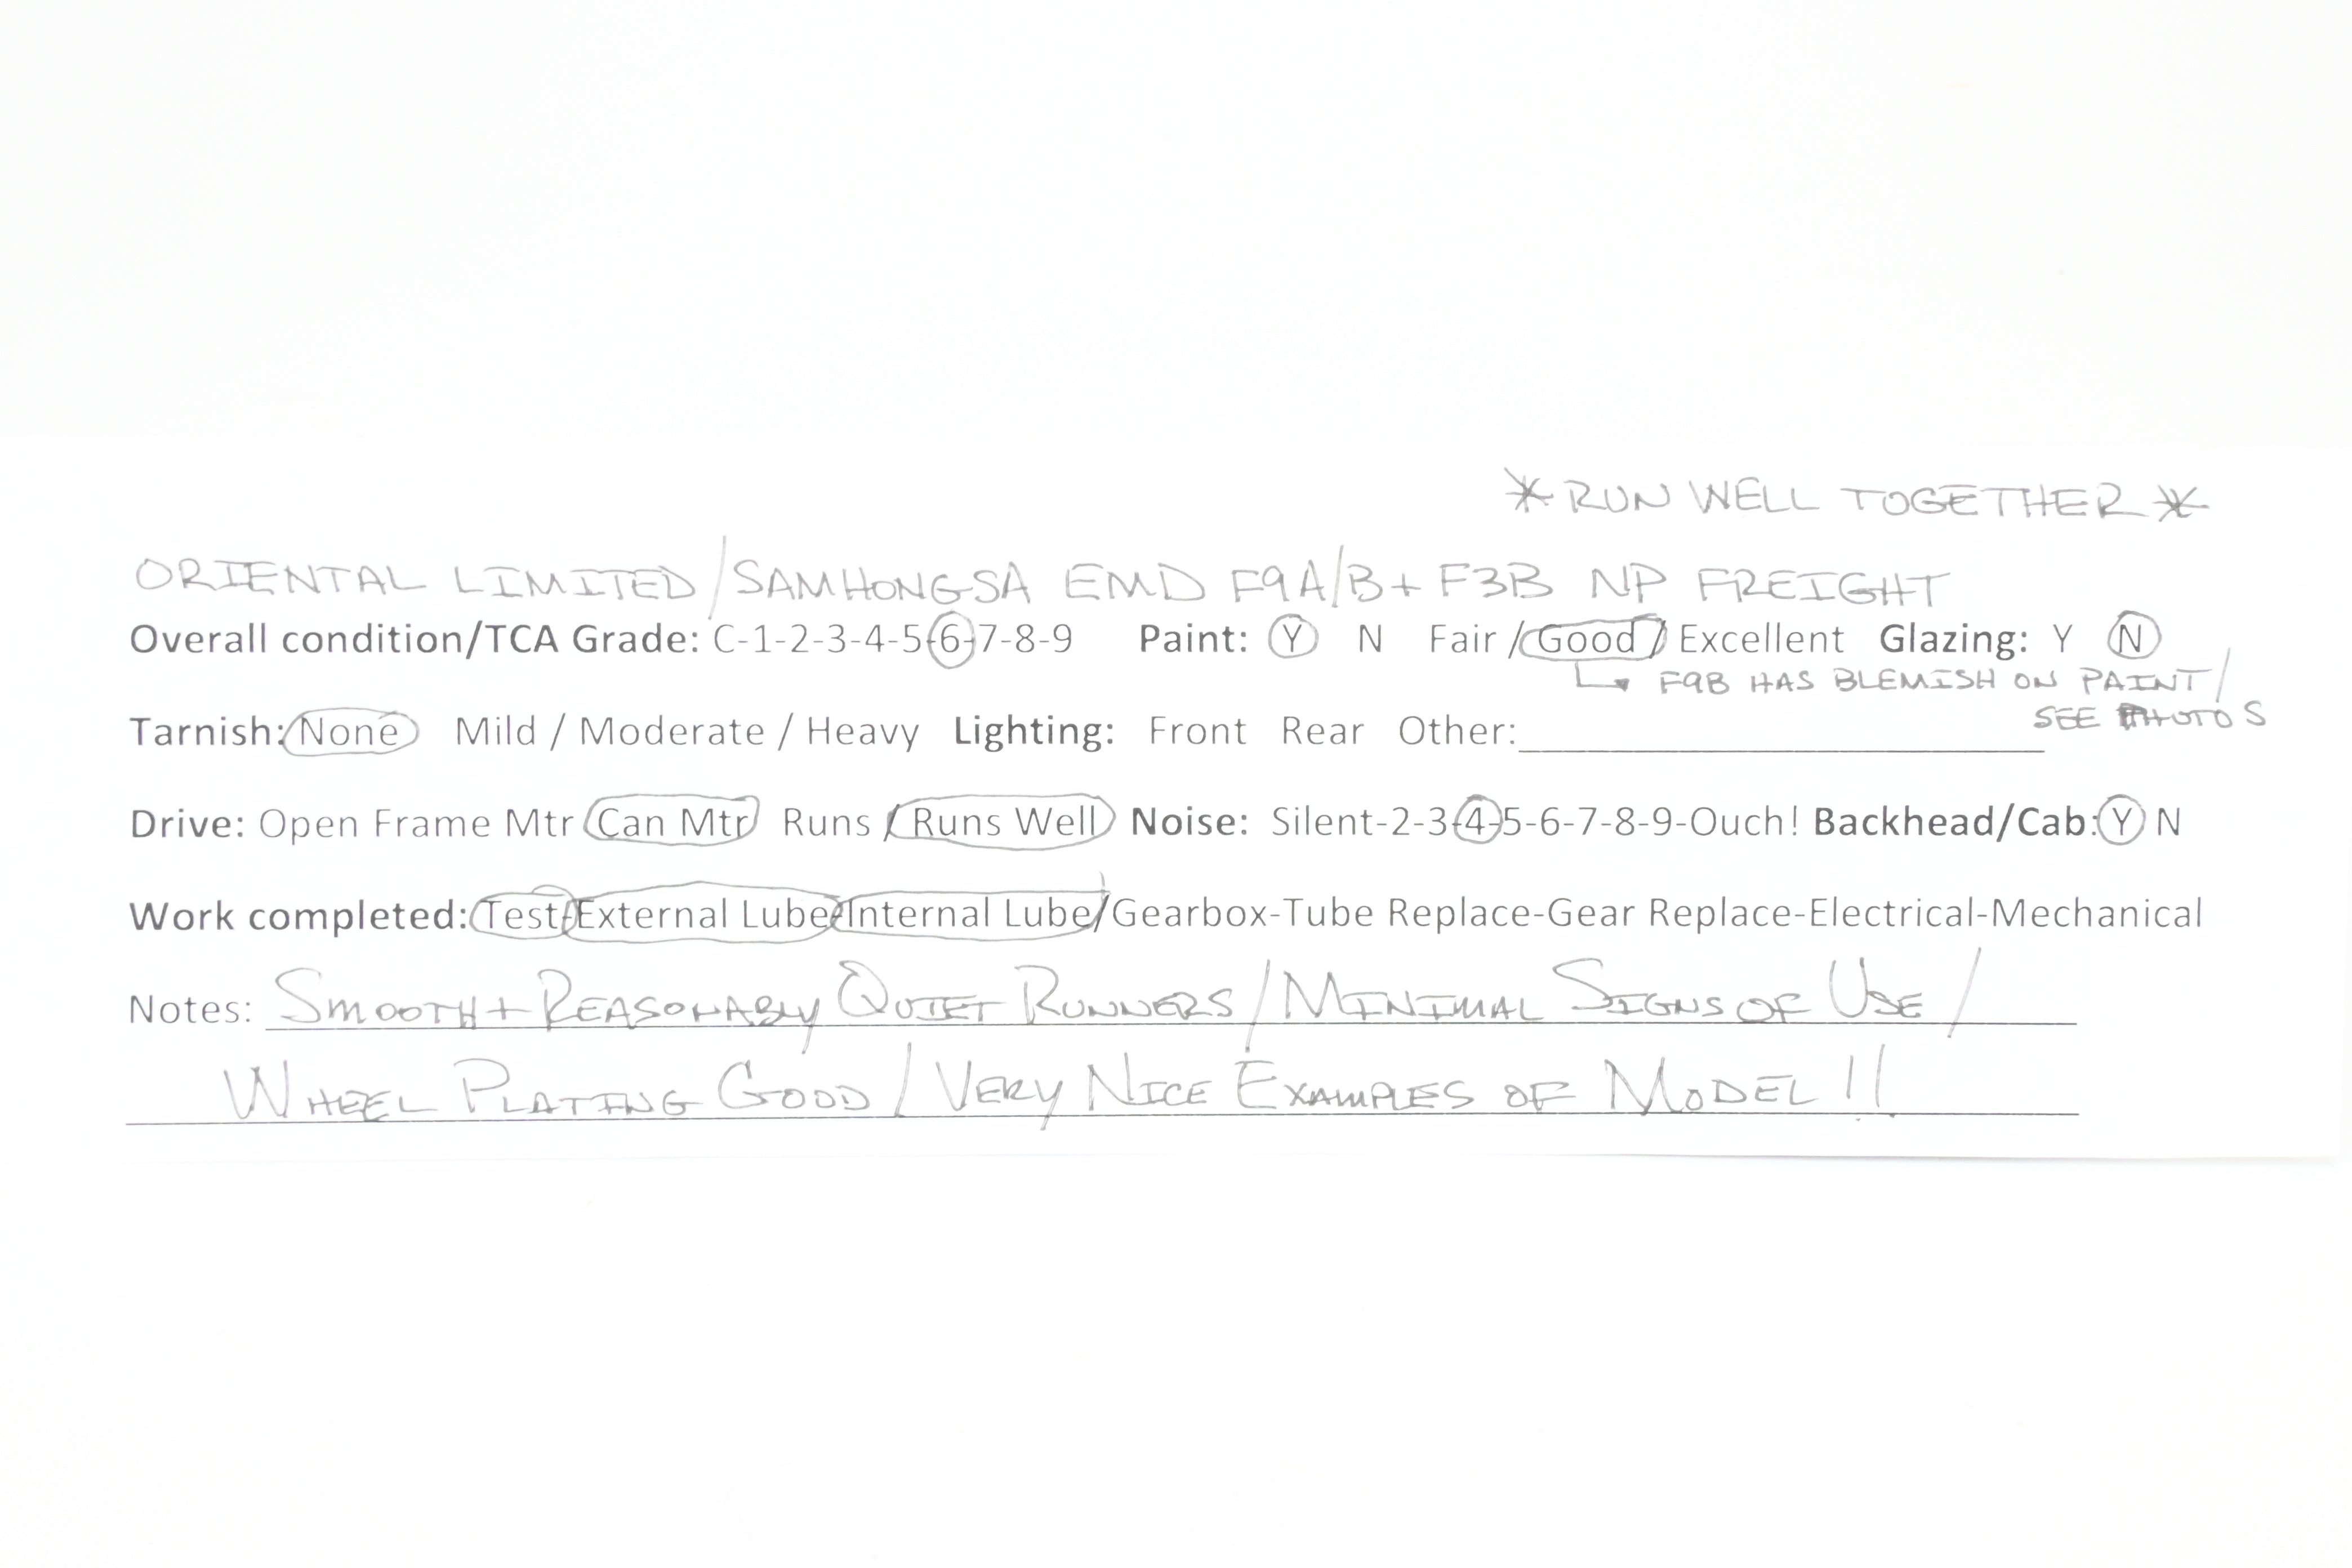 *RUN WELL TOGETHER*
ORIENTAL LIMITED/SAMHONGSA EMD F9A/B+ F3B NP FREIGHT
Overall condition/TCA Grade: C-1-2-3-4-5-6-7-8-9 Paint: Y N Fair / Good / Excellent Glazing: Y N
F9B HAS BLEMISH ON PAINT/
SEE PHOTOS
Tarnish: None Mild / Moderate / Heavy Lighting: Front Rear Other:
Drive: Open Frame Mtr Can Mtr Runs / Runs Well Noise: Silent-2-3-4-5-6-7-8-9-Ouch! Backhead/Cab: Y N
Work completed: Test/External Lube/Internal Lube/Gearbox-Tube Replace-Gear Replace-Electrical-Mechanical
Notes: SMOOTH + REASONABLY QUIET RUNNERS/MINIMAL SIGNS OF USE/
WHEEL PLATING GOOD/VERY NICE EXAMPLES OF MODEL!!